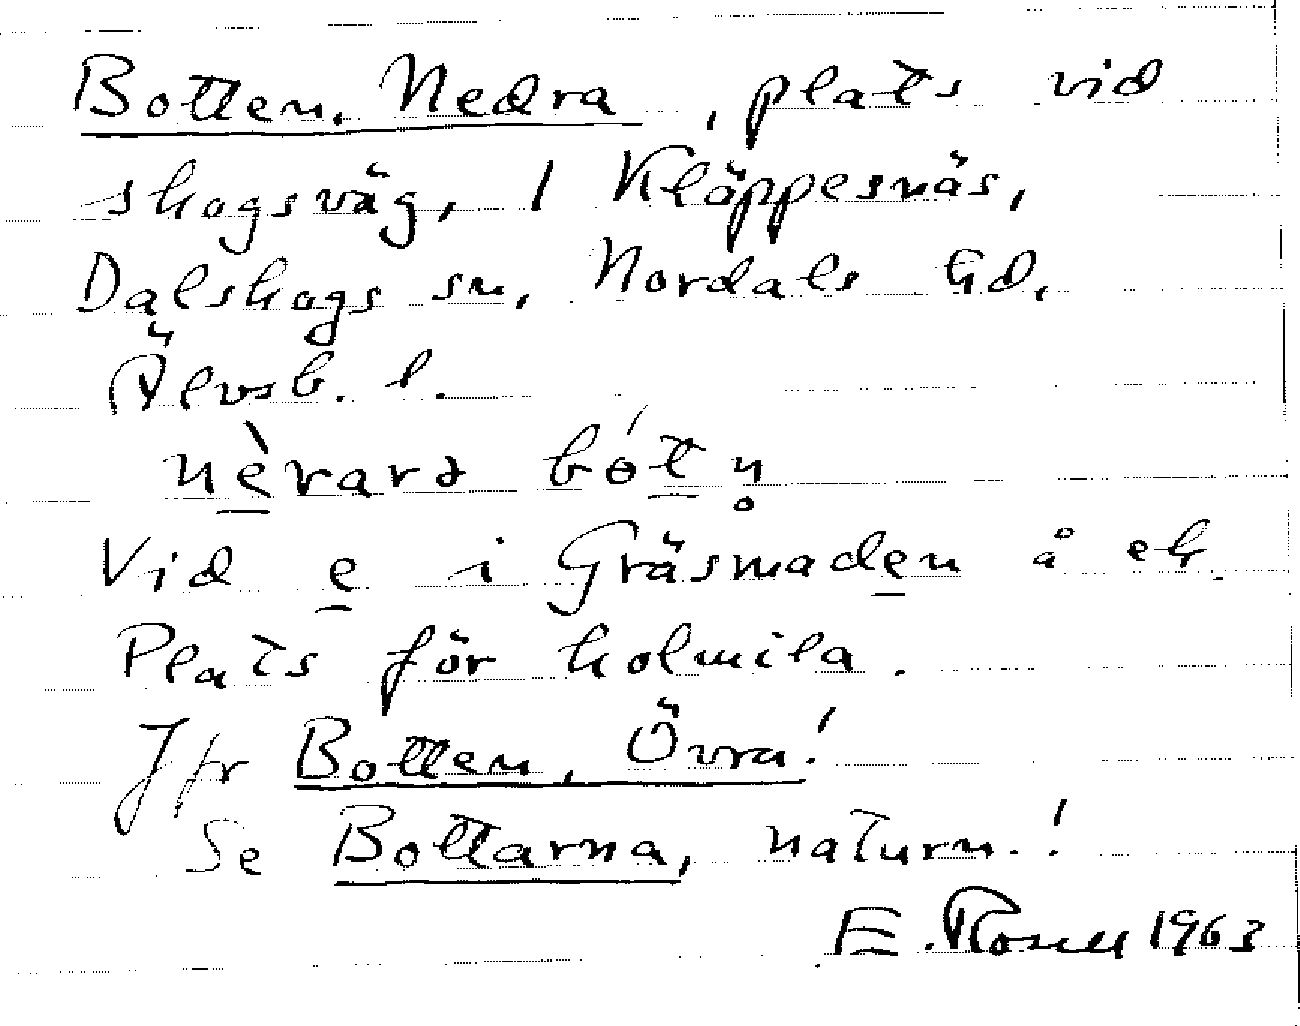 Botten, Nedra, plats vid
skogsväg, 1 Kläppesnäs,
Dalskogs sn, Nordals hd,
Älvsb. l.
nèrarə bót n̥
Vid e i Gräsmaden å ek.
Plats för kolmila.
Jfr Botten, Övra!
Se Bottarna, naturn.!
E. Rosell 1963